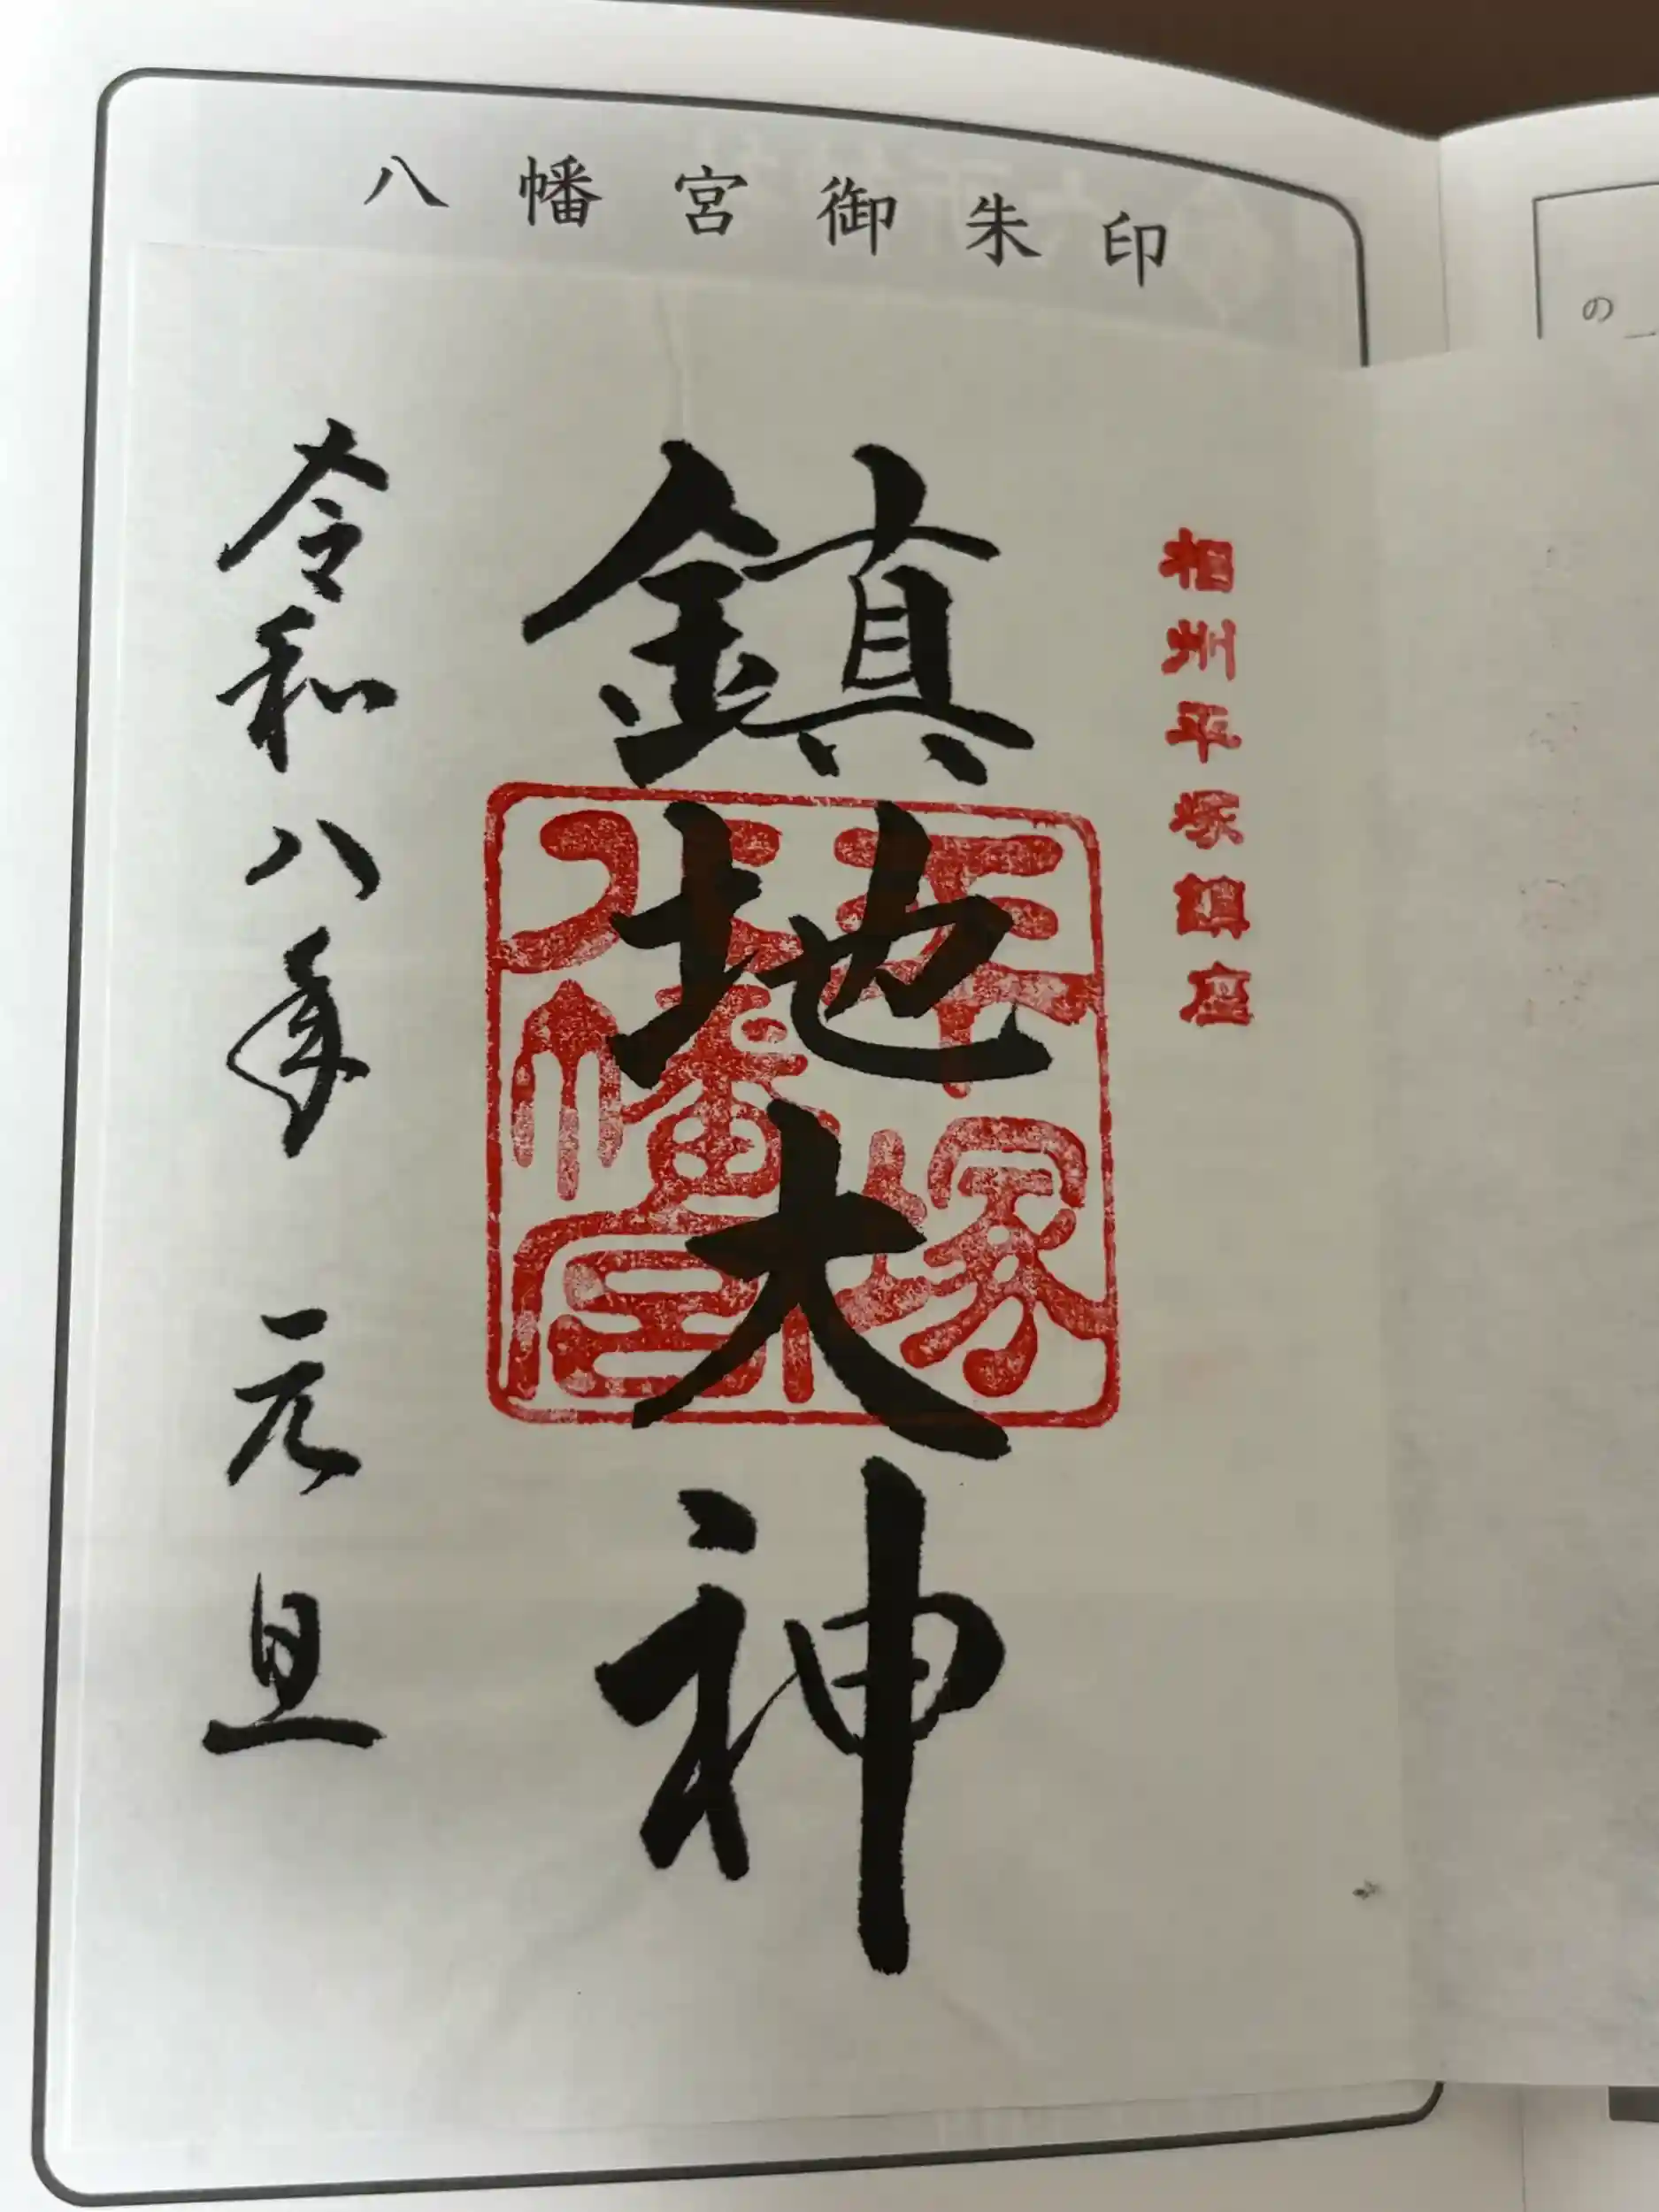 八幡宮御朱印
相州平塚鎮座
鎮地大神
平塚
八幡宮
令和八年 元旦
の